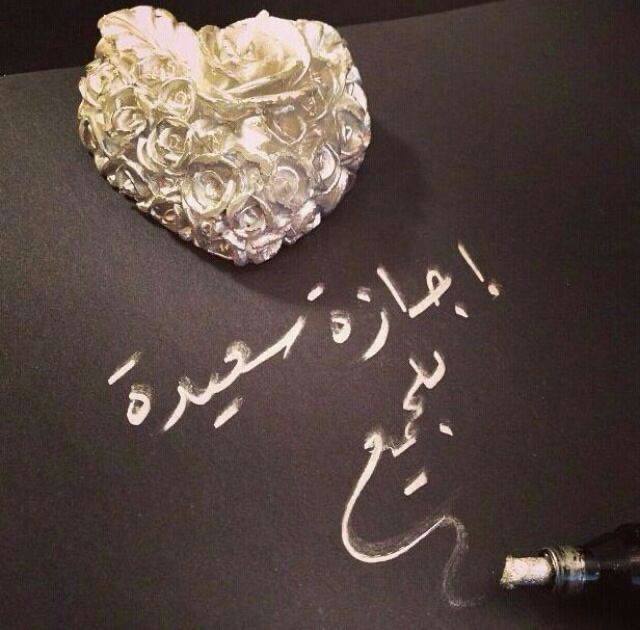 إجازة سعيدة
للجميع